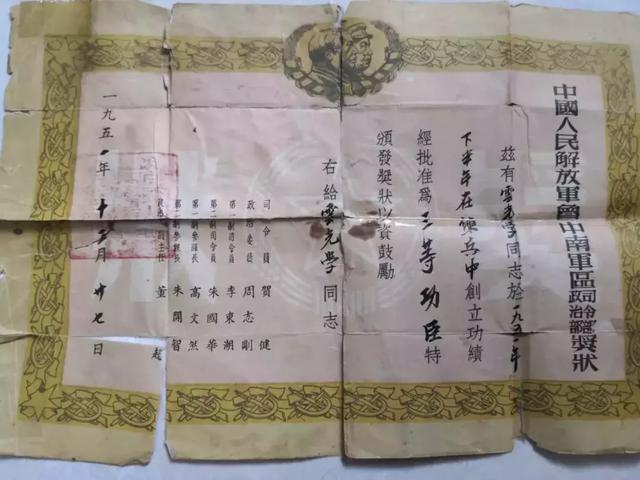 中國人民解放軍魯中南軍區司令部政治部獎狀
茲有雲光學同志於一九五一年
下半年在練兵中創立功績
經批准為三等功臣特
頒發獎狀以資鼓勵
右給雲光學同志
司令員 賀健
政治委員 周志剛
第一副司令員 李東潮
第二副司令員 朱國華
第一副參謀長 高文然
第二副參謀長 朱開智
副主任 董超
一九五一年十二月廿七日